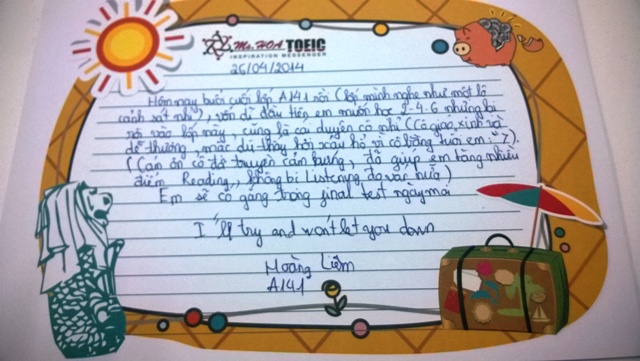 Ms. HOA TOEIC
INSPIRATION MESSENGER
26/04/2014
Hôm nay buổi cuối lớp A141 rồi (lớp mình nghe như một lô
cảnh sát nhỉ), vốn dĩ đầu tiên em muốn học 2-4-6 nhưng lại
rơi vào lớp này, cũng là cái duyên cô nhỉ (Cô giáo xinh và
dễ thương, mặc dù thấy hơi xấu hổ vì cô bằng tuổi em :")).
(Cảm ơn cô đã truyền cảm hứng, đã giúp em tăng nhiều
điểm Reading, không bị Listening dọa nữa)
Em sẽ cố gắng trong final test ngày mai
I'll try and won't let you down
Hoàng Liêm
A141